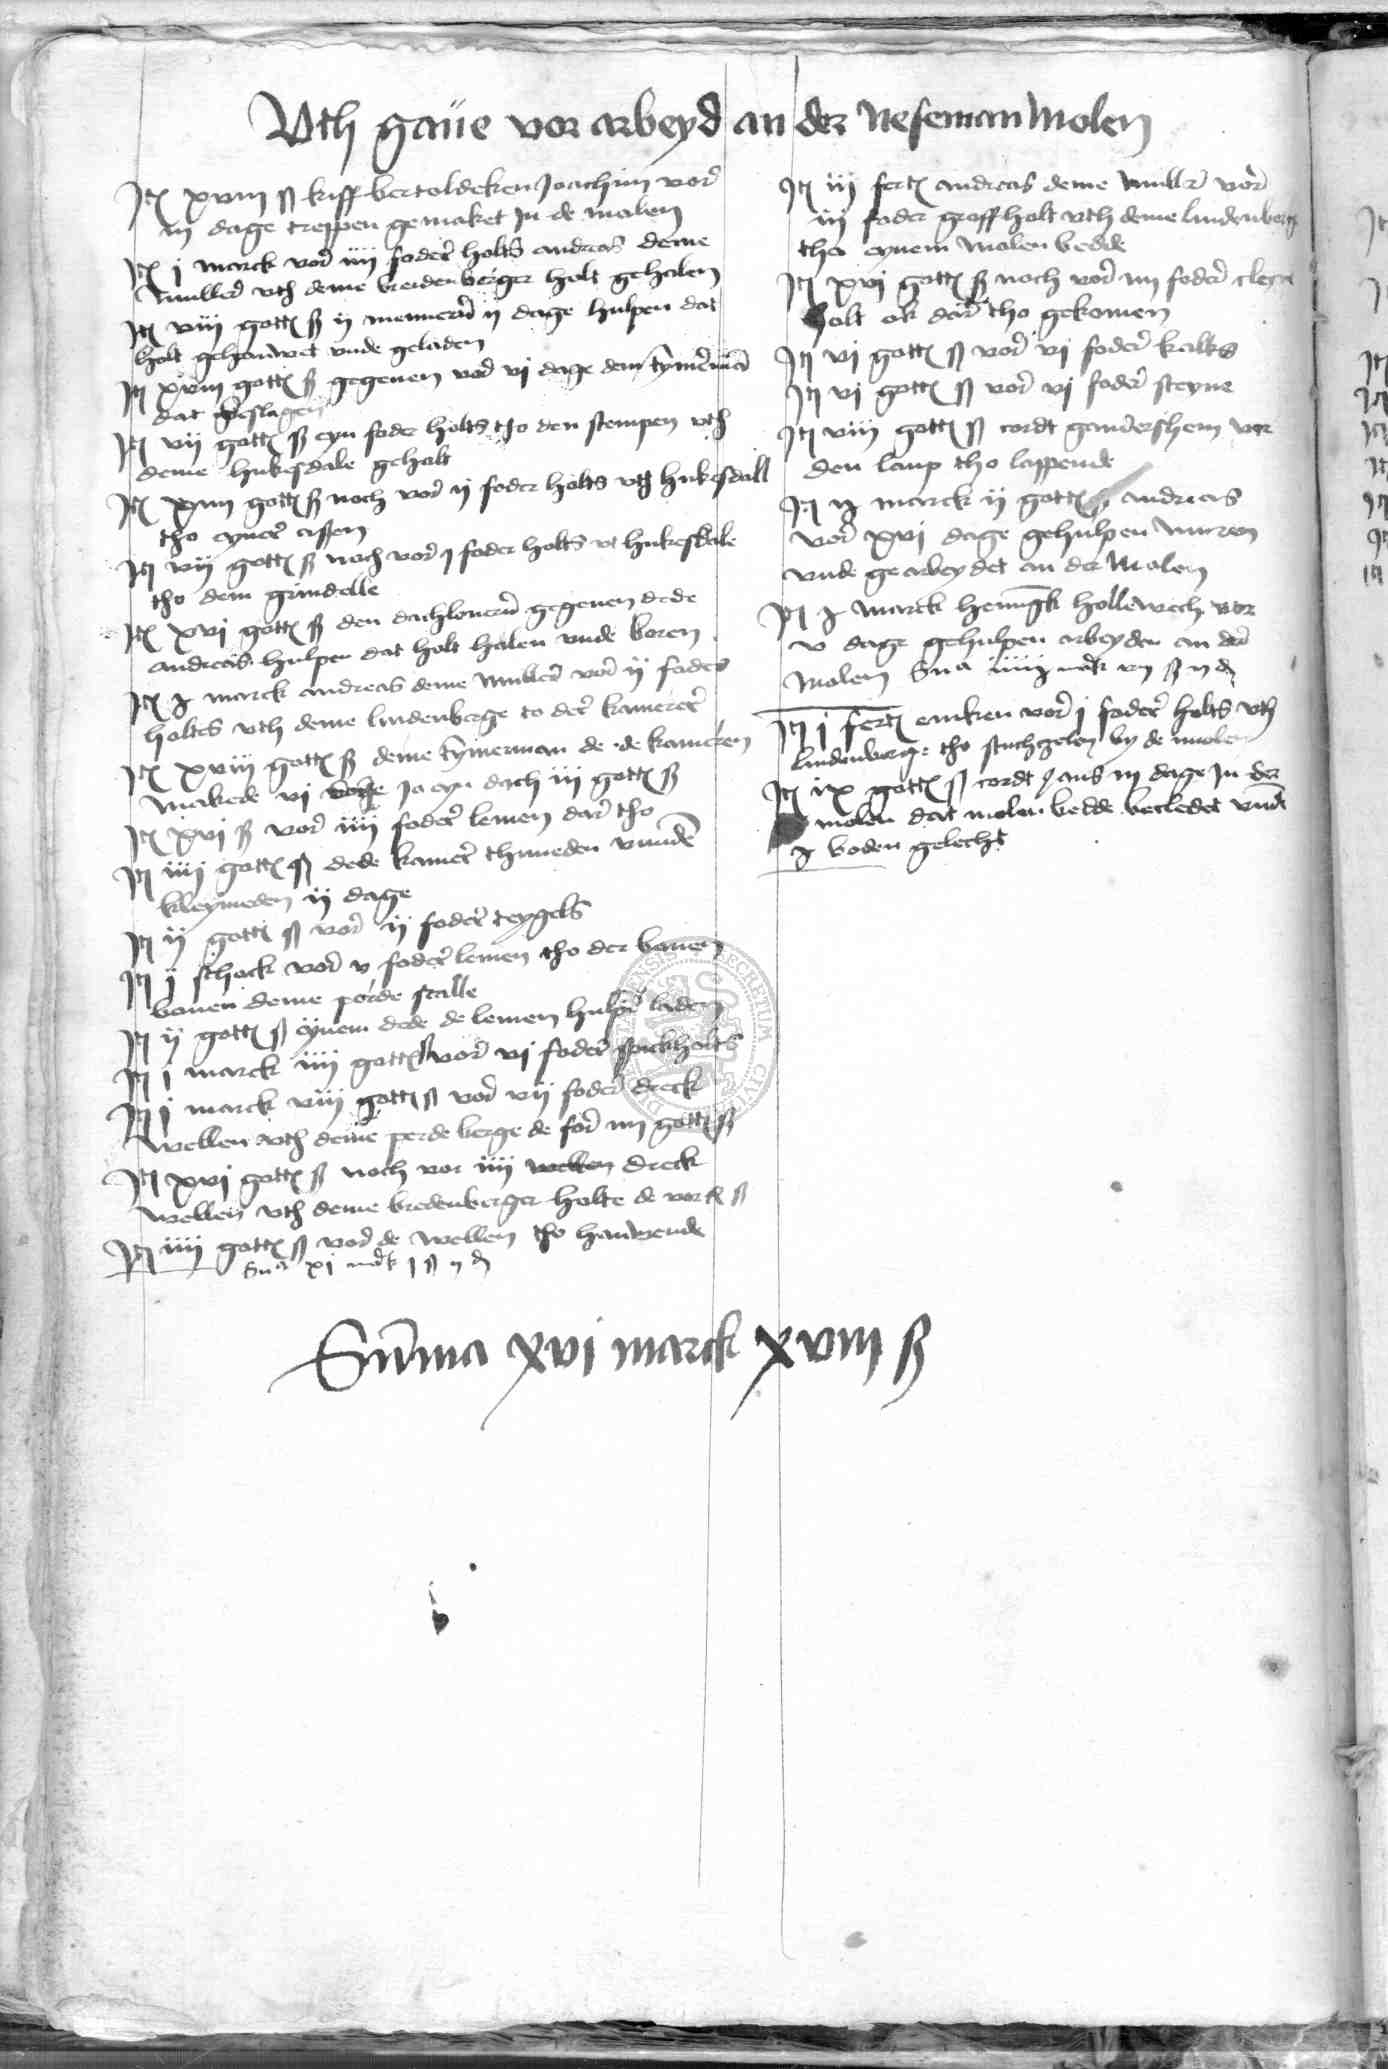 Vth gaue vor arbeyd an der Neseman Molen
Itē xviii ß kiff bertoldeken Joachim vor
iii dage treppen gemaket In de molen
Itē j marck vor iiii foder holts andreas deme
muller vth deme breidenberger holt gehalen
Itē viii gott ß ii mennern ii dage hulpen dat
holt gehauwet vnde geladen
Itē xviii gott ß gegeuen vor vj dage dem tymermā
dat beslagen
Itē vii gott ß eyn foder holts tho den stempen vth
deme hukesdale gehalt
Itē xiiii gott ß noch vor ii foder holts vth hukesdall
tho eyner assen
Itē vii gott ß noch vor j foder holts vt hukesdale
tho dem grindelle
Itē xvi gott ß den dachlonern gegeuen dede
andreas hulpen dat holt halen vnde boren
Itē j marck andreas deme muller vor ii foder
holtes vth deme lindenberge to der kamerer
Itē xviii gott ß deme tymerman de de kameren
makede vi dage jo eyn dach iii gott ß
Itē xvi ß vor iiii foder lemen dar tho
Itē iiii gott ß dede kamer thuneden vnnde
kleymeden ii dage
Itē ii gott ß vor ii foder teygels
Itē j schock vor v foder lemen tho der bauen
bouen deme perde stalle
Itē ii gott ß eynem dede de lemen hulper laden
Itē j marck iiii gott ß vor vj foder holts
Itē j marck viii gott ß vor vii foder dreck
wellen vth deme perde berge de for iiii gott ß
Itē xvi gott ß noch vor iiii dreck
wellen vth deme bredenberger holte de vor ß
Itē iiii gott ß vor de wellen tho hauwende
Sma xi mark j ß ii d
Itē iii fert andreas deme muller vor
iii foder groff holt vth deme lindenberge
tho eynem molen bedde
Itē xvi gott ß noch vor iiii foder
holt ok dar tho gekomen
Itē vi gott ß vor vi foder kalks
Itē vi gott ß vor vi foder steyne
Itē viii gott ß cordt gandershem vor
den tho lappende
Itē ii marck ii gott andreas
vor xvi dage gehulpen muren
vnde gearbeydet an der Molen
Itē j marck henningk hollewech vor
v dage gehulpen arbeyden an der
Molen Sma mark vii ß ii d
Itē j fert emken vor j foder holts vth
lindenberge tho by de molen
Itē ix gott ß cordt iii dage In der
molen dat molen bedde becledet vnde
j boden gelecht
Summa xvi marck xviii ß